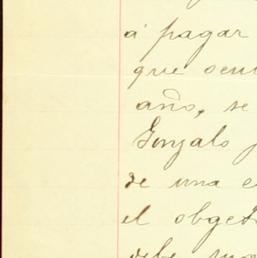 á pagar
que ocu
año, se
Gonzalo
de una e
el obget
debe